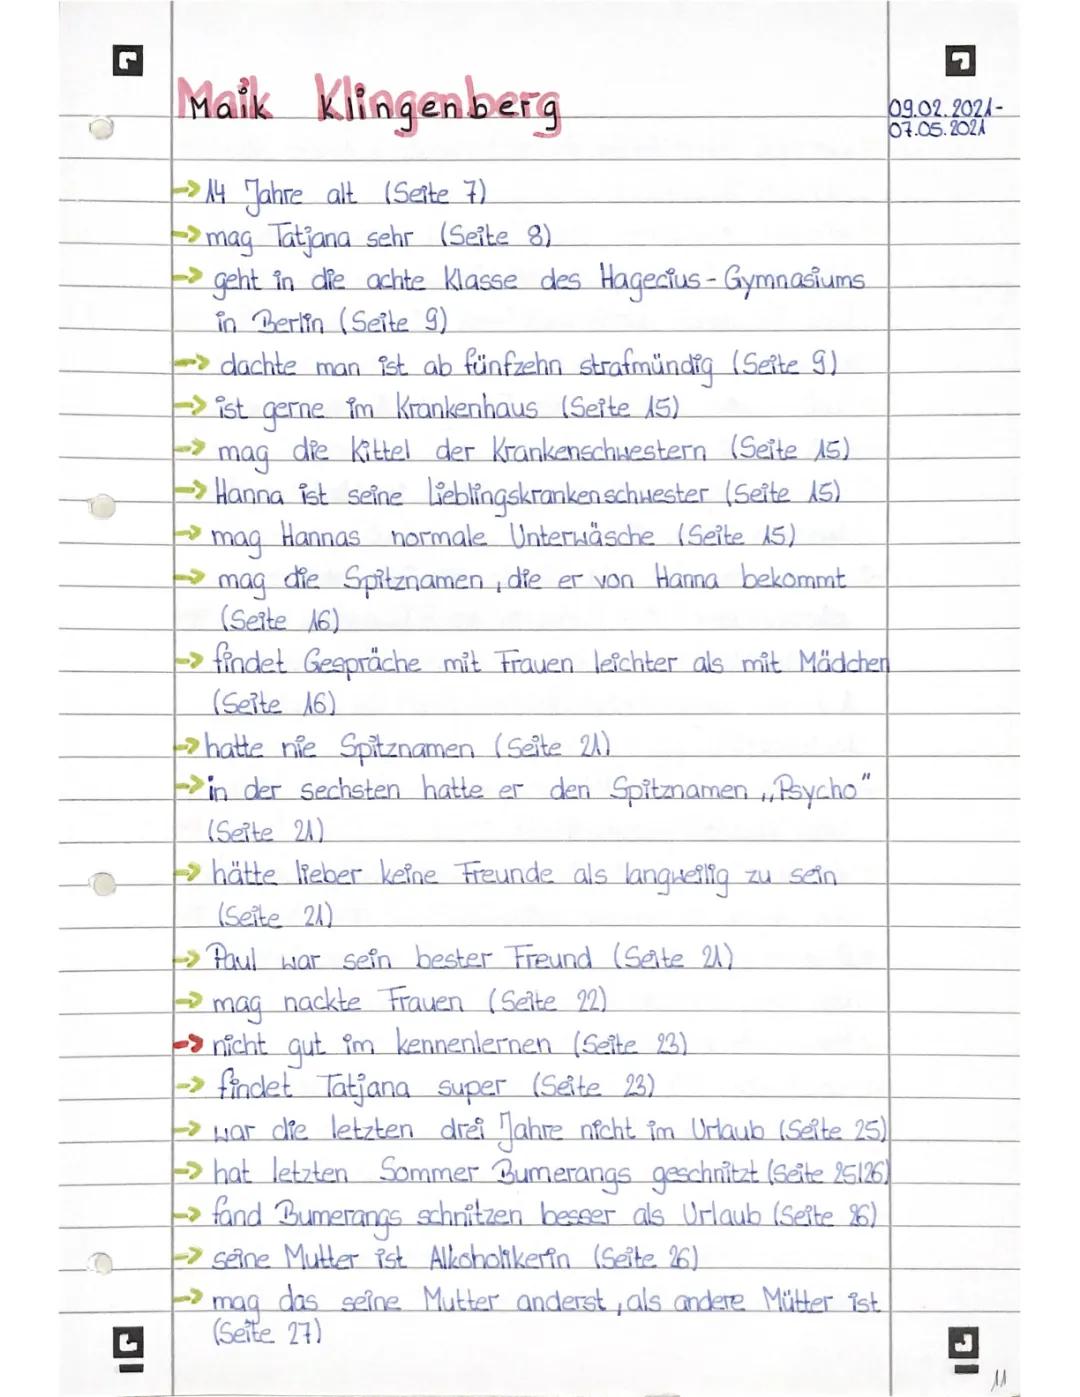 Maik Klingenberg
09.02.2021-
07.05.2021
→ 14 Jahre alt (Seite 7)
→ mag Tatjana sehr (Seite 8)
→ geht in die achte Klasse des Hagecius-Gymnasiums
in Berlin (Seite 9)
→ dachte man ist ab fünfzehn strafmündig (Seite 9)
→ ist gerne im Krankenhaus (Seite 15)
→ mag die Kittel der Krankenschwestern (Seite 15)
→ Hanna ist seine Lieblingskrankenschwester (Seite 15)
→ mag Hannas normale Unterwäsche (Seite 15)
→ mag die Spitznamen, die er von Hanna bekommt
(Seite 16)
→ findet Gespräche mit Frauen leichter als mit Mädchen
(Seite 16)
→ hatte nie Spitznamen (Seite 21)
→ in der sechsten hatte er den Spitznamen „Psycho"
(Seite 21)
→ hätte lieber keine Freunde als langweilig zu sein
(Seite 21)
→ Paul war sein bester Freund (Seite 21)
→ mag nackte Frauen (Seite 22)
→ nicht gut im kennenlernen (Seite 23)
→ findet Tatjana super (Seite 23)
→ war die letzten drei Jahre nicht im Urlaub (Seite 25)
→ hat letzten Sommer Bumerangs geschnitzt (Seite 25/26)
→ fand Bumerangs schnitzen besser als Urlaub (Seite 26)
→ seine Mutter ist Alkoholikerin (Seite 26)
→ mag das seine Mutter anderst, als andere Mütter ist
(Seite 27)
11